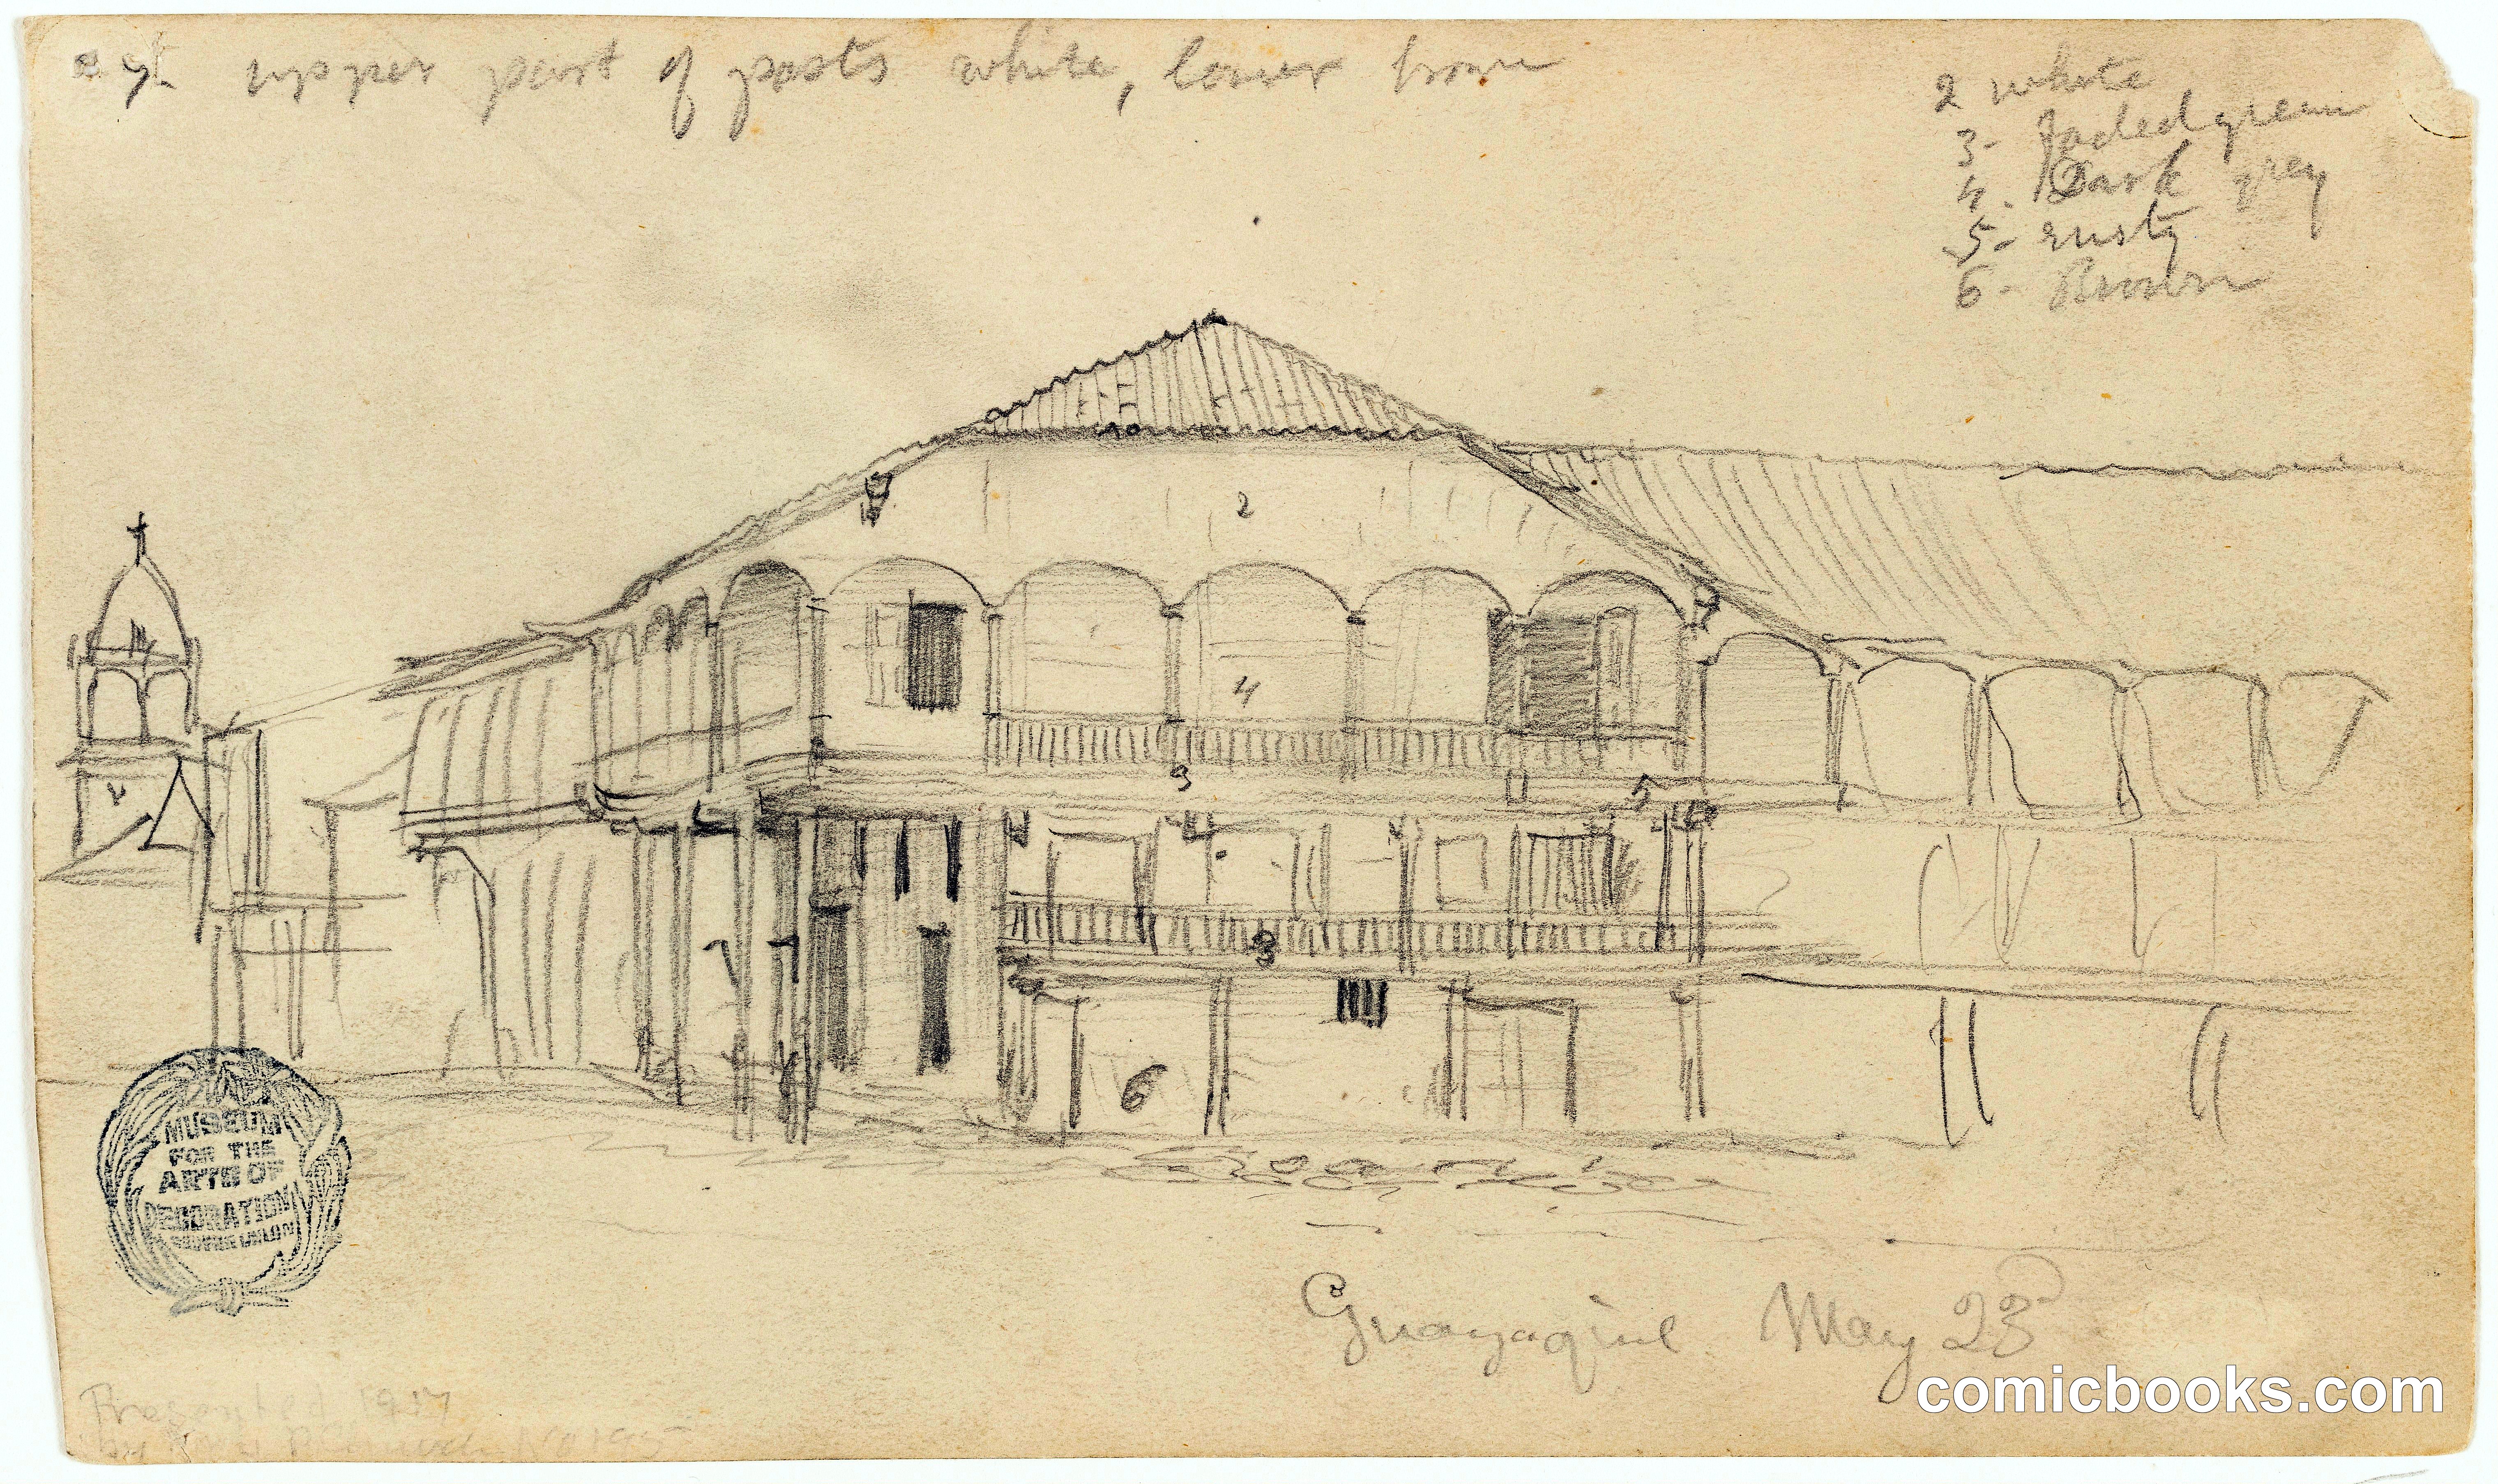 7. upper part of posts white, lower brown
2 white
3- faded green
4. Dark grey
5- rusty
6- Brown
2
4
3
5
7 7
3
6
MUSEUM
FOR THE
ARTS OF
DECORATION
COOPER UNION
Guayaquil. May 23
Presented 1917
by
comicbooks.com